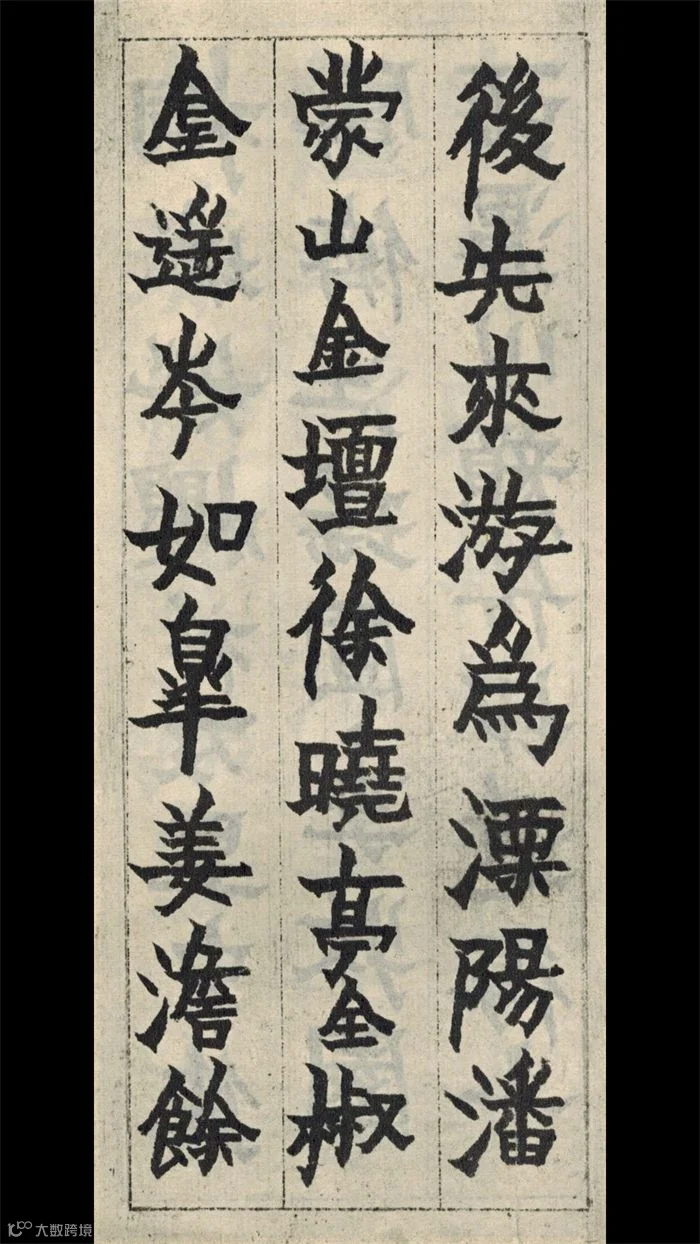 後先來游爲溧陽潘
蒙山金壇徐曉亭全椒
金遥岑如皋姜澹餘
大数跨境